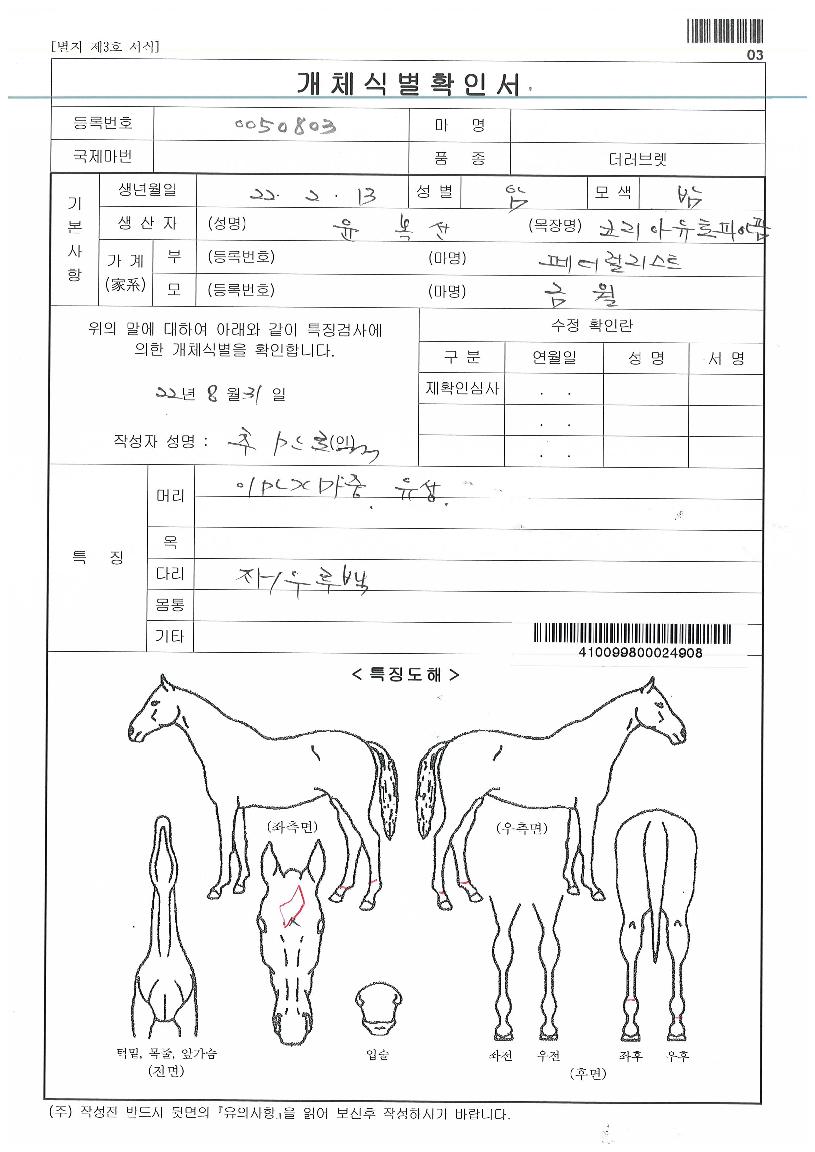 [별지 제3호 서식]
03
개체식별확인서
등록번호 0050803 마 명
국제마번 품 종 더러브렛
기본사항
생년월일 22. 2. 13 성 별 암 모 색 밤
생 산 자 (성명) 윤 복 산 (목장명) 코리아유토피아팜
가 계 (家系) 부 (등록번호) (마명) 페더럴리스트
모 (등록번호) (마명) 금 월
위의 말에 대하여 아래와 같이 특징검사에
의한 개체식별을 확인합니다.
22년 8월 31일
작성자 성명 : (인)
수정 확인란
구 분 연월일 성 명 서 명
재확인심사 . .
. .
. .
특 징
머리 유성.
목
다리
몸통
기타
410099800024908
< 특징도해 >
(좌측면) (우측면)
턱밑, 목줄, 앞가슴 입술 좌전 우전 좌후 우후
(전면) (후면)
(주) 작성전 반드시 뒷면의 『유의사항』을 읽어 보신후 작성하시기 바랍니다.